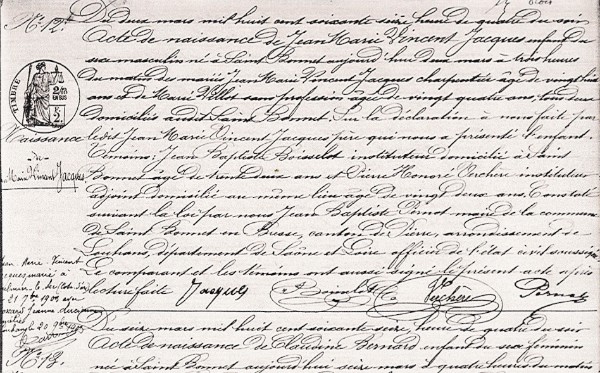 N° 12.
Du deux mars mil huit cent soixante seize heure de quatre du soir
Acte de naissance de Jean Marie Vincent Jacques enfant du
sexe masculin né à Saint Bonnet aujourd'hui deux mars à trois heures
du matin des mariés Jean Marie Vincent Jacques charpentier âgé de vingt huit
ans et de Marie Villet sans profession âgée de vingt quatre ans, tous deux
domiciliés audit Saint Bonnet. Sur la déclaration à nous faite par
ledit Jean Marie Vincent Jacques père qui nous a présenté l'enfant.
Témoins: Jean Baptiste Boisselot instituteur domicilié à Saint
Bonnet âgé de ans et Pierre Honoré Vuchère instituteur
adjoint domicilié au même lieu âgé de vingt deux ans. Constaté
suivant la loi par nous Jean Baptiste Pernot maire de la commune
de Saint Bonnet en Bresse, canton de Pierre, arrondissement de
Louhans, département de Saône et Loire officier de l'état civil soussigné.
Le comparant et les témoins ont aussi signé le présent acte après
lecture faite
Jacques Vuchère Pernot
TIMBRE
2
5
Naissance
de
Marie Vincent Jacques
Vincent
marié à
21 7bre 1901
Jeanne
20 9bre
N° 13.
Du seize mars mil huit cent soixante seize, heure de quatre du soir
Acte de naissance de Claudine Bernard enfant du sexe féminin
née à Saint Bonnet aujourd'hui seize mars à quatre heures du matin